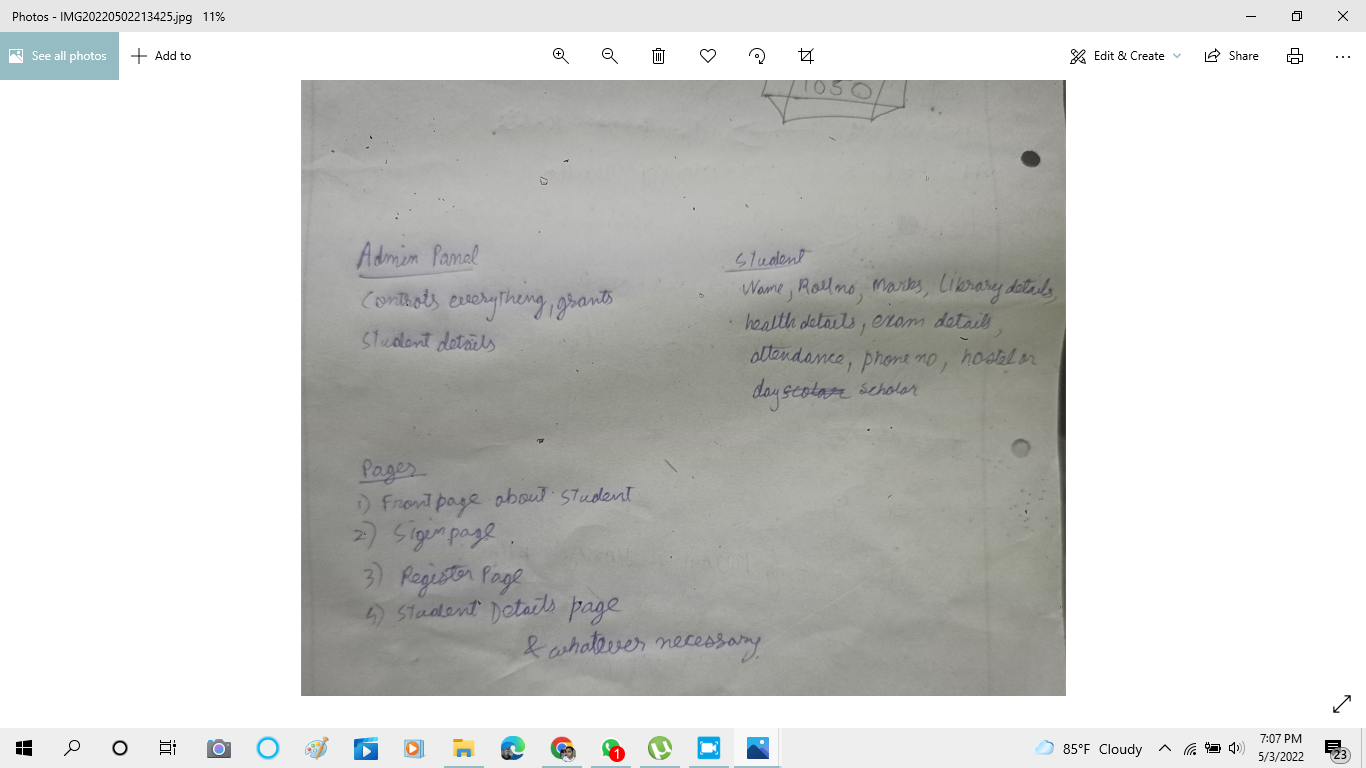 Photos - IMG20220502213425.jpg 11%
See all photos
Add to
Edit & Create
Share
1050
Admin Panel
Controls everything, grants
Student details
Student
Name, Roll no, Marks, Library details,
health details, exam details,
attendance, phone no, hostel or
day scolar scholar
Pages
1) Front page about student
2) Sigin page
3) Register Page
4) Student Details page
& whatever necessary.
1
85°F Cloudy
7:07 PM
5/3/2022
23